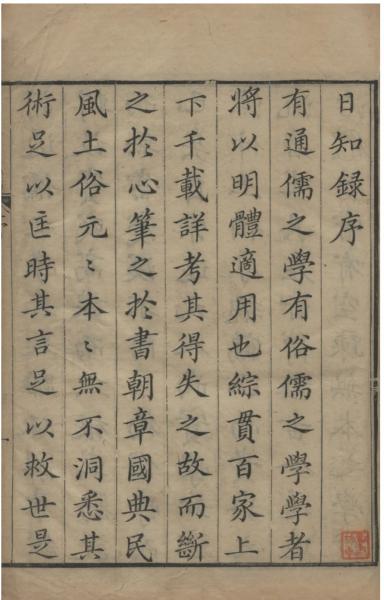 日知錄序
有通儒之學有俗儒之學學者
將以明體適用也綜貫百家上
下千載詳考其得失之故而斷
之於心筆之於書朝章國典民
風土俗元〻本〻無不洞悉其
術足以匡時其言足以救世是